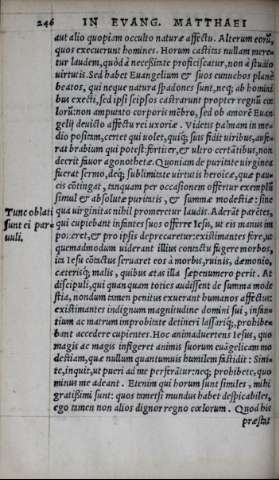 246 IN EVANG. MATTHAEI
aut alio quopiam occulto naturæ affectu. Alterum eorũ,
quos execuerunt homines. Horum castitas nullam mere-
tur laudem, quòd à necessitate proficiscatur, non à studio
uirtutis. Sed habet Euangelium & suos eunuchos planè
beatos, qui neque natura spadones sunt, neq; ab homini
bus execti, sed ipsi seipsos castrarunt propter regnũ cœ
lorũ: non amputato corporis mẽbro, sed ob amorẽ Euan
gelij deuicto affectu rei uxoriæ. Videtis palmam in me-
dio positam, certet qui uolet, quiq; suis fidit uiribus, aufe-
rat brabium qui potest: fortiter, & ultro certãtibus, non
deerit fauor agonothetæ. Quoniam de puritate uirginea
fuerat sermo, deq; sublimitate uirtutis heroicæ, quæ pau-
cis cõtingat, tanquam per occasionem offertur exemplũ
simul & absolutæ puritatis, & summæ modestiæ: sine
qua uirginitas nihil promeretur laudis. Aderãt parẽtes,
Tunc oblati qui cupiebant infantes suos offerre Iesu, ut eis manus im
sunt ei par poneret, & pro ipsis deprecaretur: existimantes fore, ut
uuli. quemadmodum uiderant illius contactu fugere morbos,
ita Iesu cõtactus seruaret eos à morbis, ruinis, dæmonio,
cæterisq; malis, quibus ætas illa sæpenumero perit. At
discipuli, qui quanquam toties audissent de summa mode
stia, nondum tamen penitus exuerant humanos affectus:
existimantes indignum magnitudine domini sui, infan-
tium ac matrum improbitate detineri lassariq;, prohibe-
bant accedere cupientes. Hoc animaduertens Iesus, quo
magis ac magis infigeret animis suorum euãgelicam mo
destiam, quæ nullum quantumuis humilem fastidit: Sini-
te, inquit, ut pueri ad me perferãtur: neq; prohibete, quo
minus me adeant. Etenim qui horum sunt similes, mihi
gratissimi sunt: quos tametsi mundus habet despicabiles,
ego tamen non alios dignor regno cœlorum. Quod his
præstat